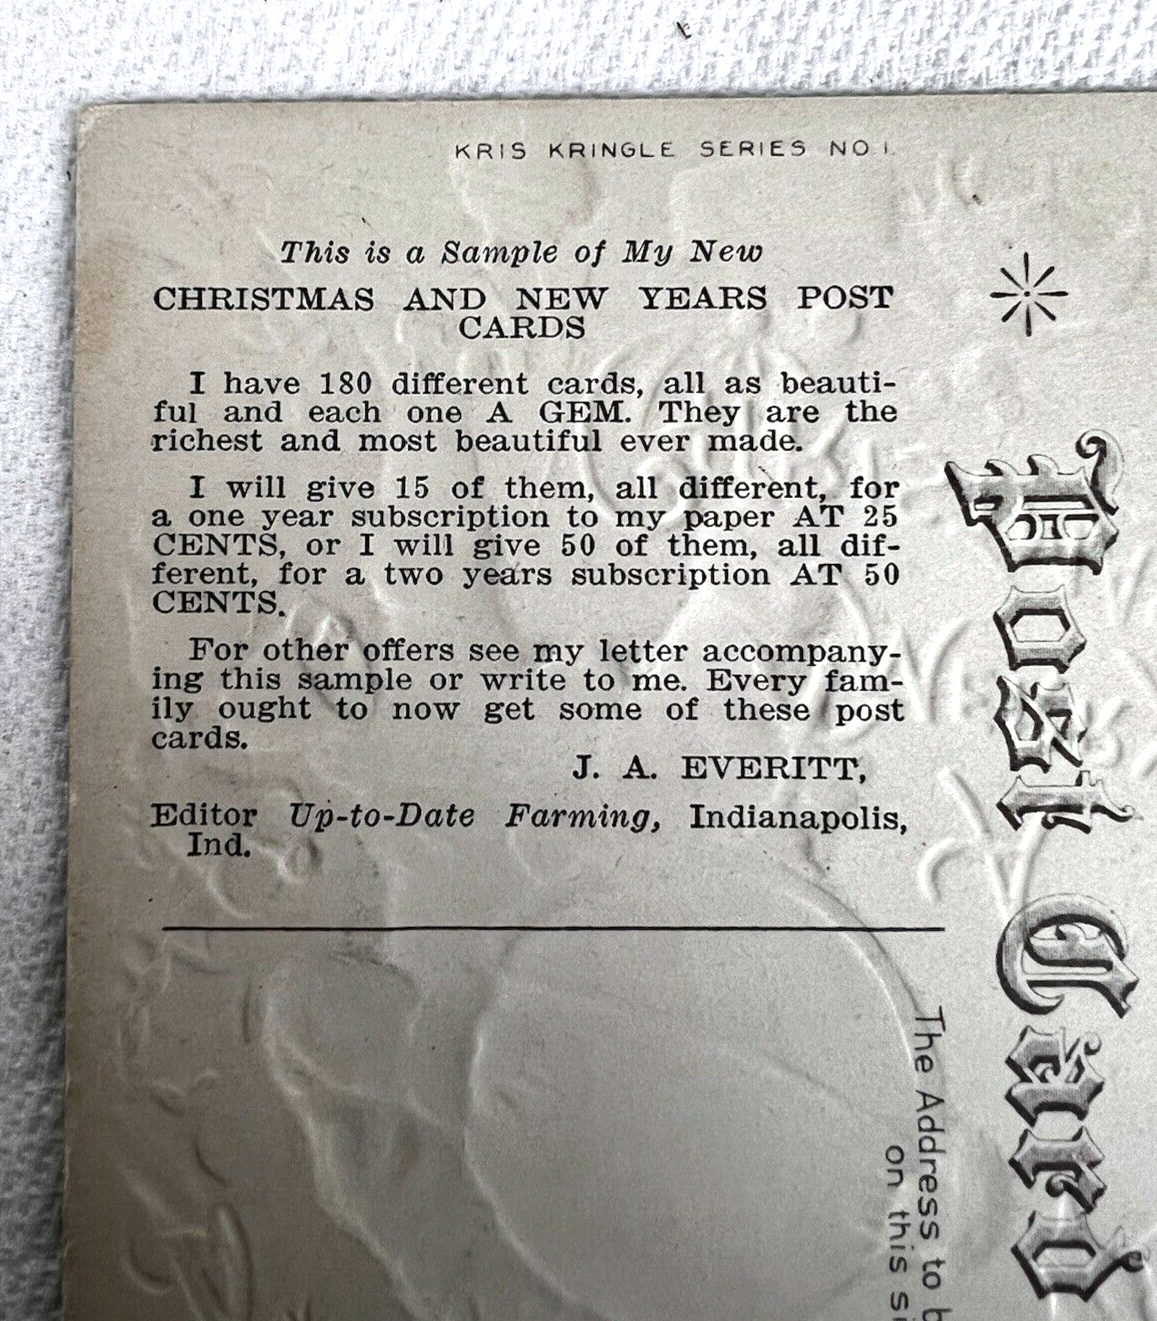 KRIS KRINGLE SERIES NO 1.
This is a Sample of My New
CHRISTMAS AND NEW YEARS POST
CARDS
I have 180 different cards, all as beauti-
ful and each one A GEM. They are the
richest and most beautiful ever made.
I will give 15 of them, all different, for
a one year subscription to my paper AT 25
CENTS, or I will give 50 of them, all dif-
ferent, for a two years subscription AT 50
CENTS.
For other offers see my letter accompany-
ing this sample or write to me. Every fam-
ily ought to now get some of these post
cards.
J. A. EVERITT,
Editor Up-to-Date Farming, Indianapolis,
Ind.
Post Card
The Address to
on this